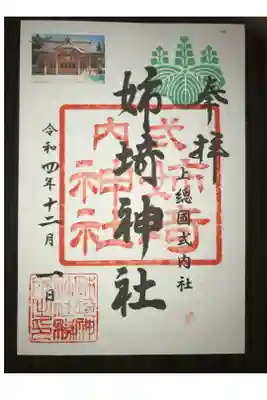 奉拝
上總國式内社
姉埼神社
式内
姉埼
神社
令和四年十二月一日